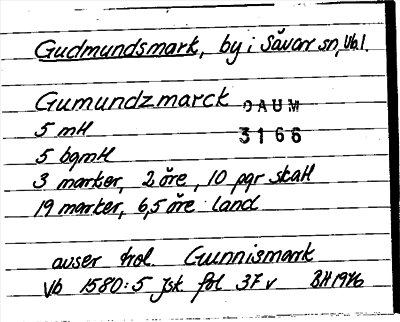 Gudmundsmark, by i Sävar sn, Vb.l.
Gumundzmarck
DAUM
3166
5 mtl
5 bqmtl
3 marker, 2 öre, 10 pgr skatt
19 marker, 6,5 öre land
avser trol. Gunnismark
Vb 1580:5 Jsk fol 37 v BH 1976